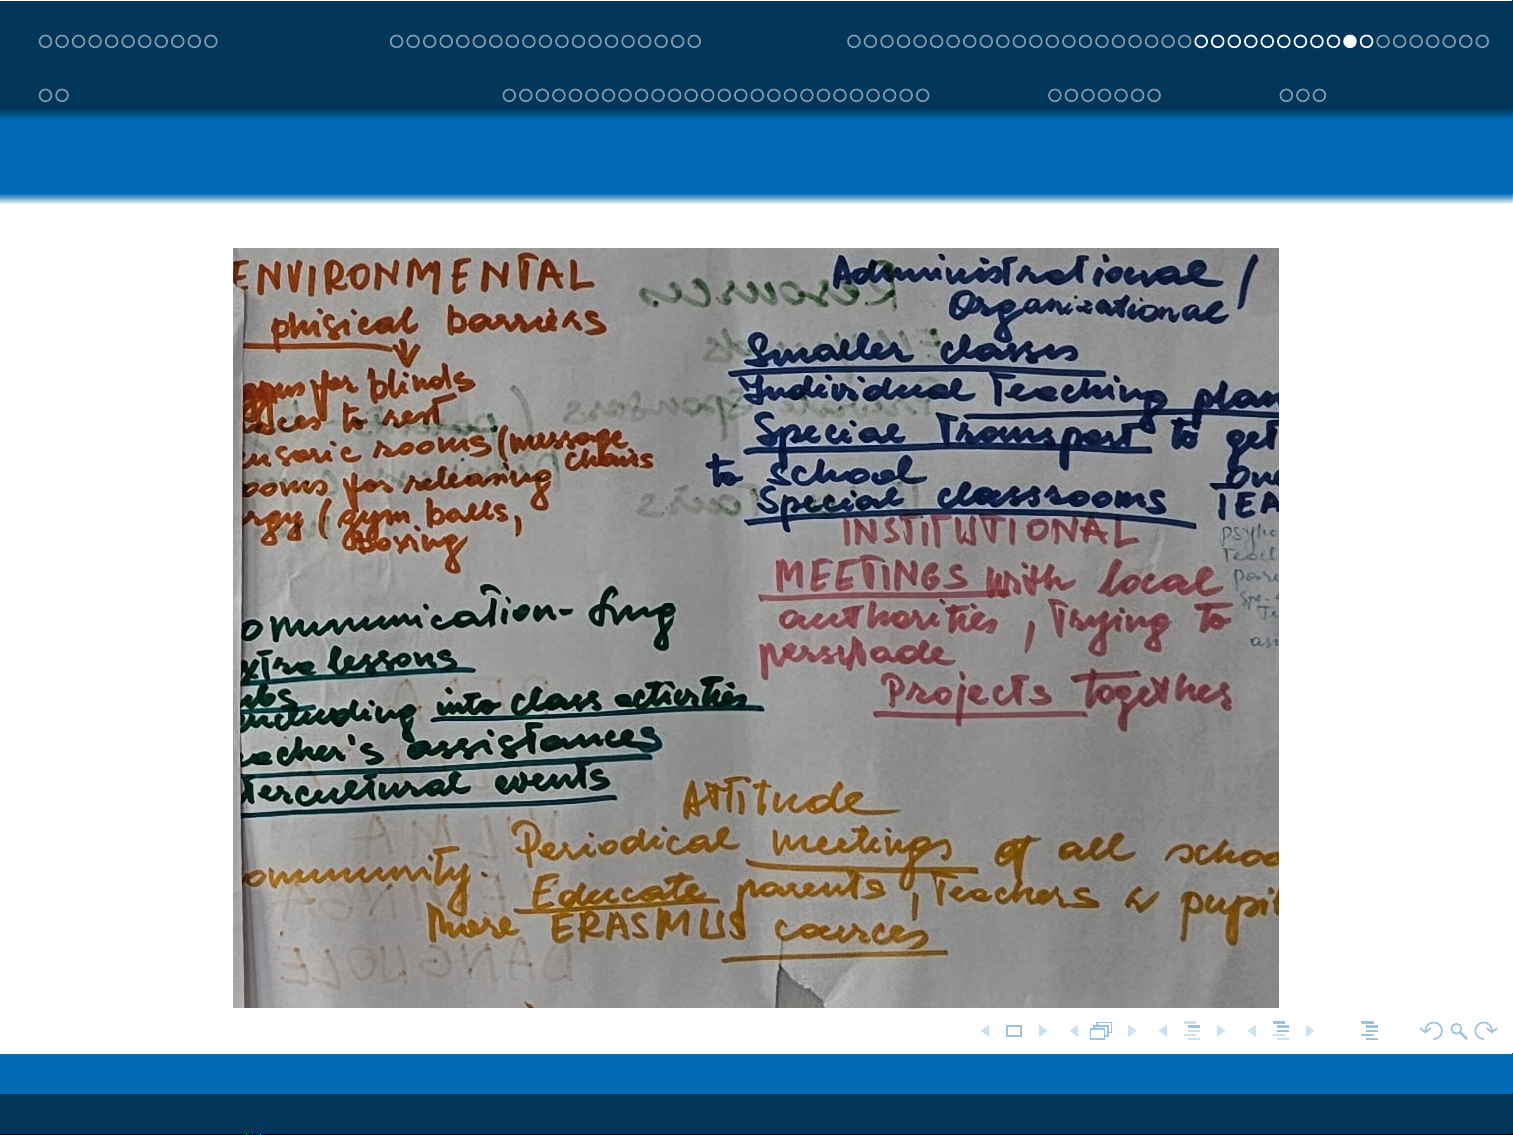 ENVIRONMENTAL
phisical barriers
for blinds
to rest
rooms (message
chairs
for releasing
(gym balls,
boxing
Administrational /
Organizational
Smaller classes
Individual Teaching plan
Special Transport to get
to school
Special classrooms
TEA
INSTITUTIONAL
MEETINGS with local
authorities, Trying to
persuade
Projects Together
ommunication-
xtra lessons
including into class activities
eacher's assistances
tercultural events
Attitude
Periodical meetings of all schoo
ommunity. Educate parents, Teachers & pupil
More ERASMUS cources